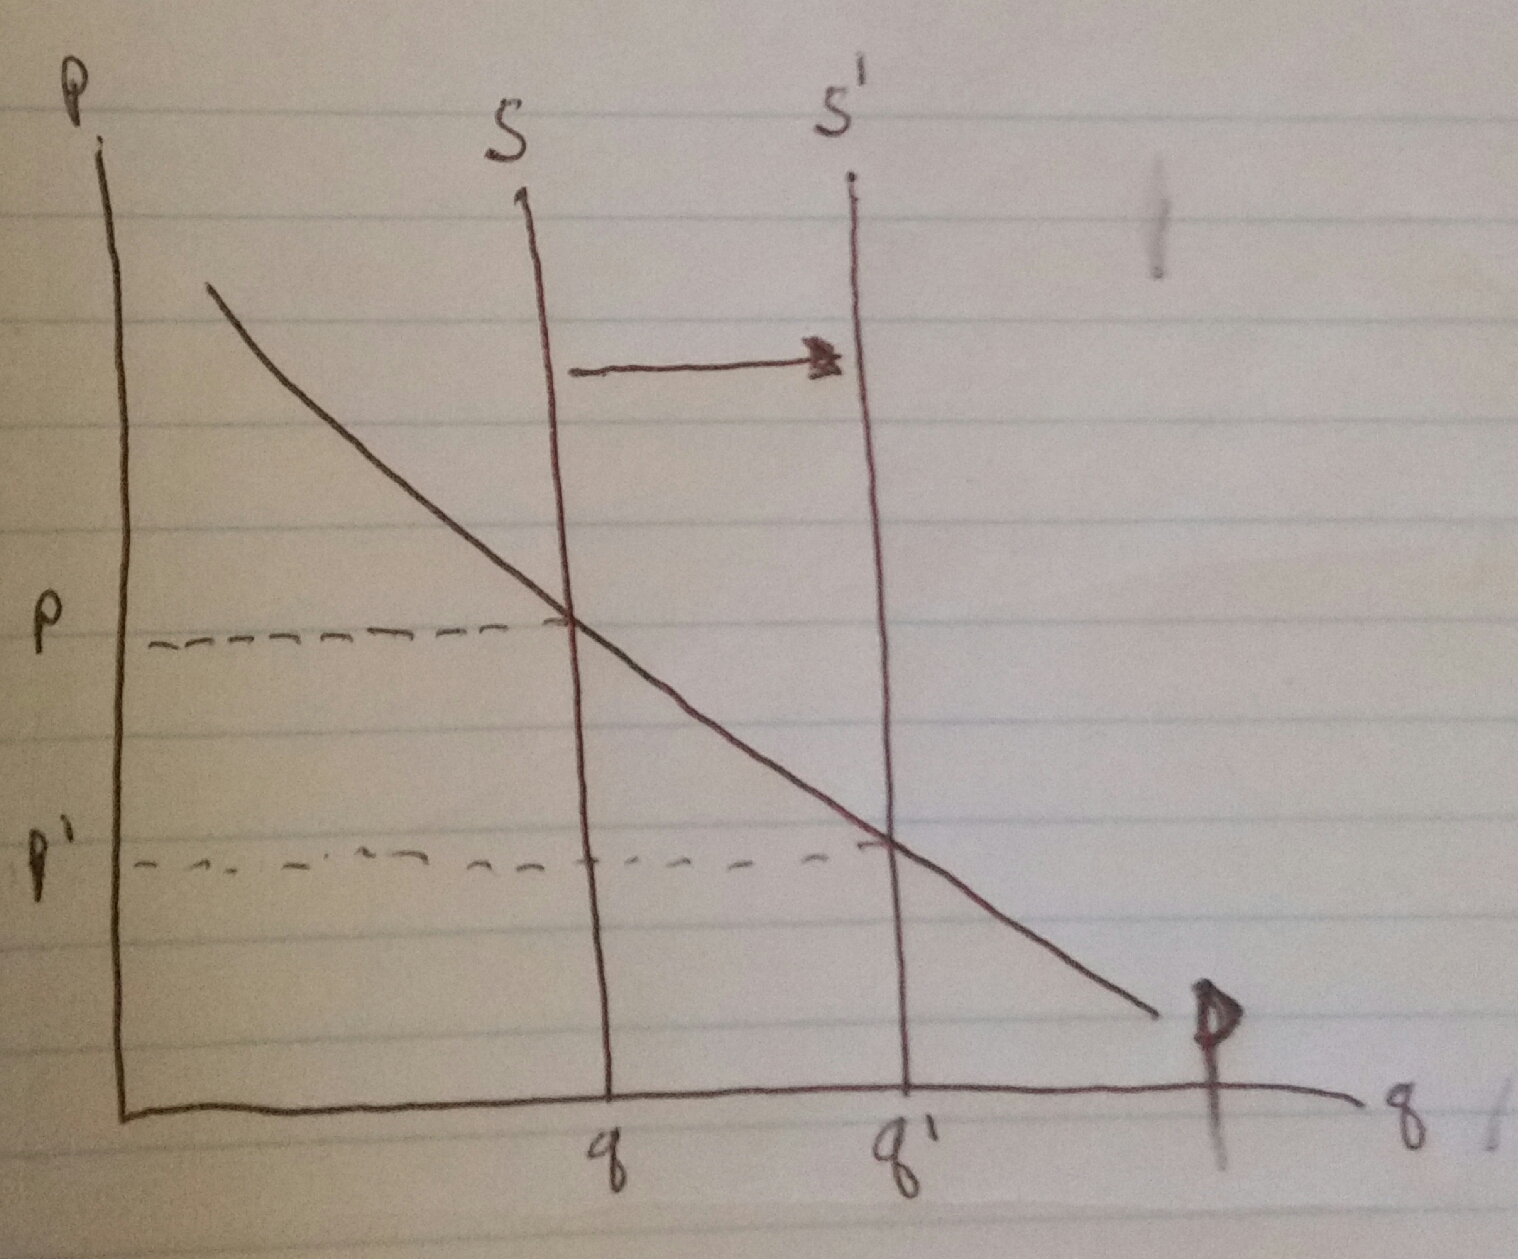 P
S S'
P
P'
D
q q' q